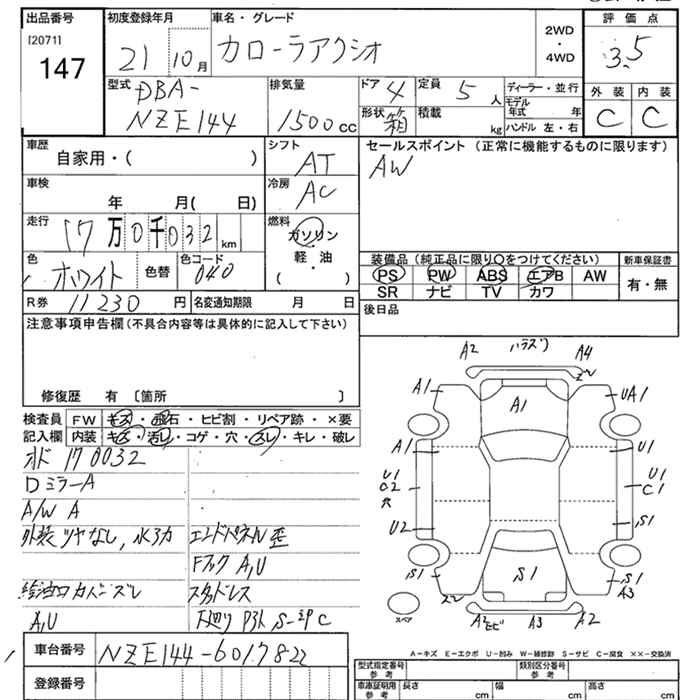 出品番号 初度登録年月 車名・グレード 2WD・4WD 評価点
[2071]
147
21 10月
カローラアクシオ
3.5
外装 内装
C C
型式 DBA-
NZE144
排気量 1500cc
ドア 4 定員 5人
形状 箱 積載 kg
ディーラー・並行
モデル年式 年
ハンドル 左・右
車歴 自家用・( )
シフト AT
セールスポイント (正常に機能するものに限ります)
AW
車検 年 月( 日)
冷房 AC
走行 17万0千032km
燃料 ガソリン・軽油・( )
色 ホワイト 色替 色コード 040
装備品 (純正品に限り○をつけてください) 新車保証書
PS PW ABS エアB AW 有・無
SR ナビ TV カワ
R券 11230円 名変通知期限 月 日
後日品
注意事項申告欄 (不具合内容等は具体的に記入して下さい)
修復歴 有 〔箇所 〕
検査員 FW キズ・飛石・ヒビ割・リペア跡・×要
記入欄 内装 キズ・汚レ・コゲ・穴・スレ・キレ・破レ
170032
DミラーA
A/W A
外装ツヤなし, 水アカ エンドパネル歪
Fフック A,U
給油口カバーズレ スタッドレス
A,U
車台番号 NZE144-6017822
登録番号
A2 A4
A1 A1 UA1
A1 U1
U1
C2
穴
U1
C1
U2 S1
S1 S1 S1
A3
スペア
A2 ヒビ A3 A2
A-キズ E-エクボ U-凹み W-補修跡 S-サビ C-腐食 ××-交換済
型式指定番号 参考 類別区分番号 参考
車庫証明用 参考 長さ cm 幅 cm 高さ cm